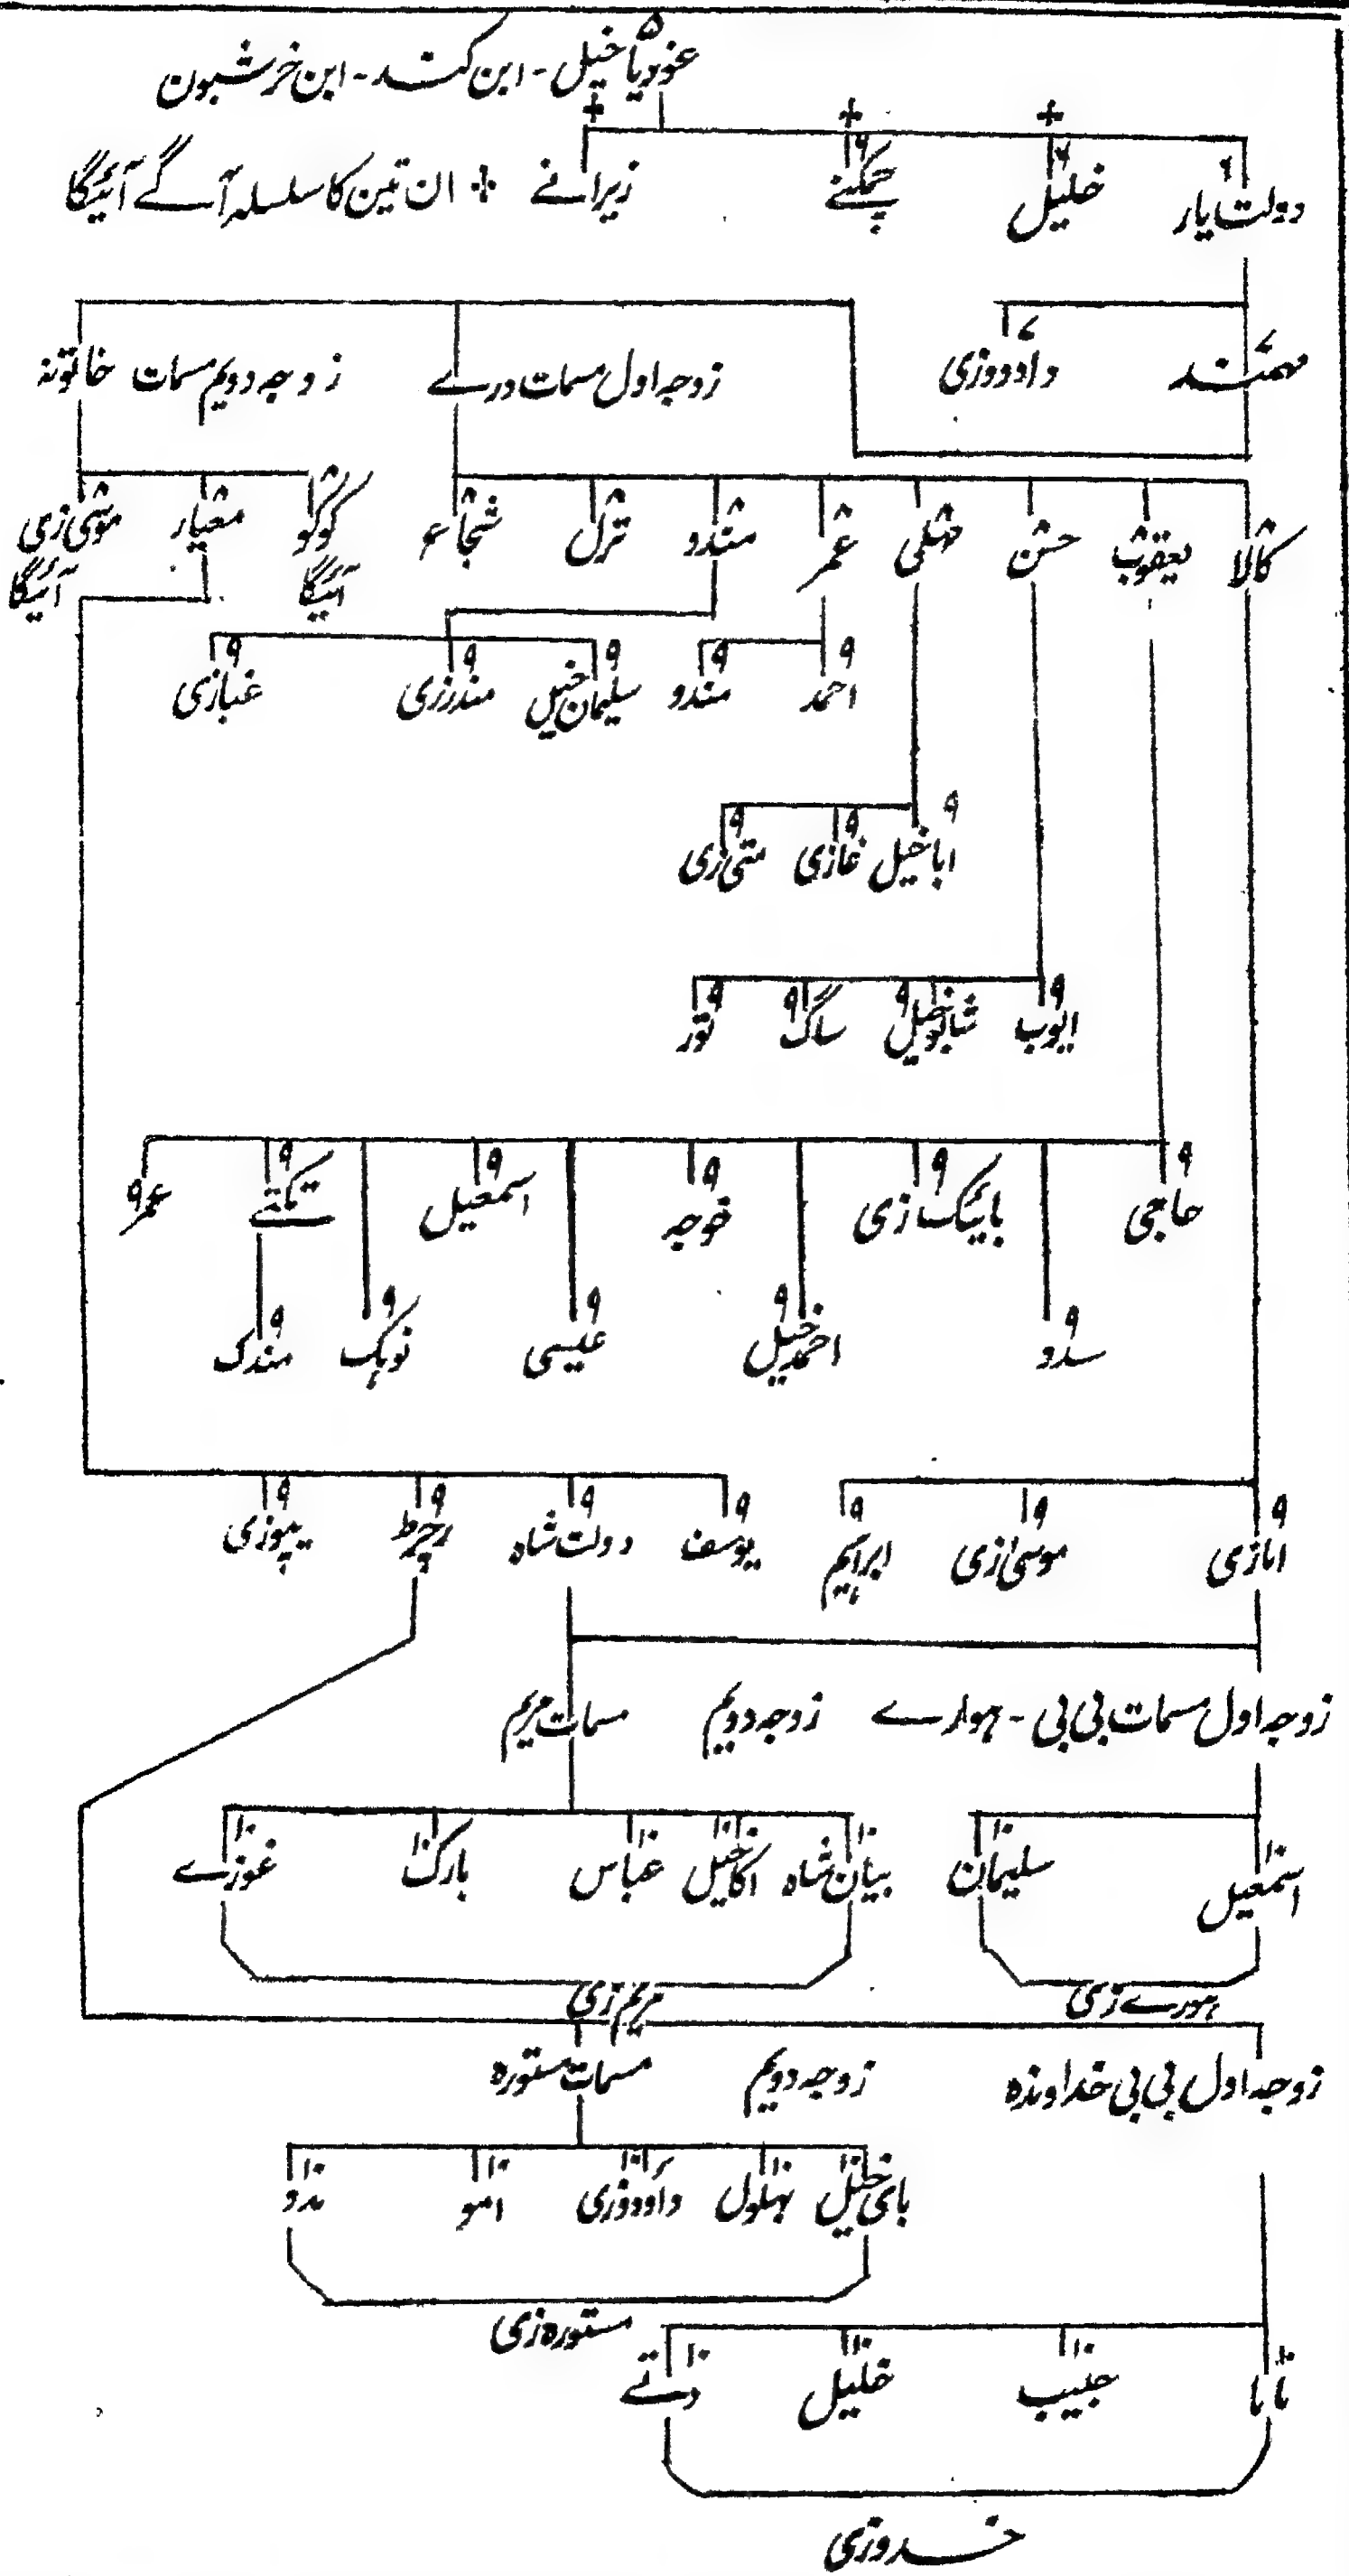 غوریا خیل - ابن کند - ابن خرشبون ۵
دولت یار ۶ خلیل ۶ چمکنے ۶ زیرانے + ان تین کا سلسلہ آگے آئیگا
مہمند ۷ داودزی ۷ زوجہ اول مسمات درے زوجہ دویم مسمات خاتونہ
کالا ۸ یعقوب ۸ حسن ۸ عمر ۸ مندو ۸ ترل ۸ شجاع ۸ کوکو ۸ معیار ۸ موسی زی ۸
آئیگا آئیگا
احمد ۹ مندو ۹ سلیمان خیل ۹ مندرزی ۹ غبازی ۹
ابا خیل ۹ غازی ۹ متی زی ۹
ایوب ۹ ۹ ساگ ۹ تور ۹
حاجی ۹ بائیک زی ۹ خوجہ ۹ اسمعیل ۹ تکتے ۹ عمر ۹
سدو ۹ احمد خیل ۹ عیسی ۹ نوہک ۹ مندک ۹
ابازی ۹ موسی زی ۹ ابراہیم ۹ یوسف ۹ دولت شاہ ۹ ۹ یپوزی ۹
زوجہ اول مسمات بی بی - ہوارے زوجہ دویم مسمات مریم
اسمعیل ۱۰ سلیمان ۱۰ بیان شاہ ۱۰ اکاخیل ۱۰ عباس ۱۰ بارک ۱۰ غوزے ۱۰
ہورے زی مریم زی
زوجہ اول بی بی خداوندہ زوجہ دویم مسمات ستورہ
بای خیل ۱۰ بہلول ۱۰ داودزی ۱۰ امو ۱۰ مدو ۱۰
مستورہ زی
بابا ۱۰ حبیب ۱۰ خلیل ۱۰ دتے ۱۰
خدوزی